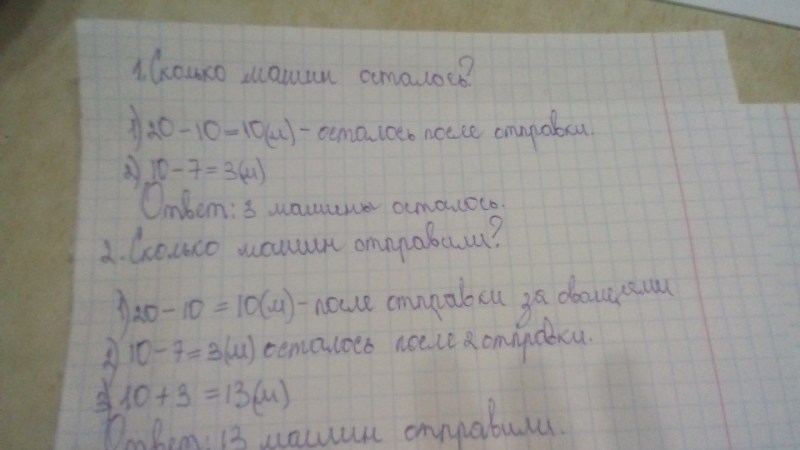 1. Сколько машин осталось?
1) 20 - 10 = 10(м) - осталось после отправки.
2) 10 - 7 = 3(м)
Ответ: 3 машины осталось.
2. Сколько машин отправили?
1) 20 - 10 = 10(м) - после отправки за овощами
2) 10 - 7 = 3(м) осталось после 2 отправки.
3) 10 + 3 = 13(м)
Ответ: 13 машин отправили.